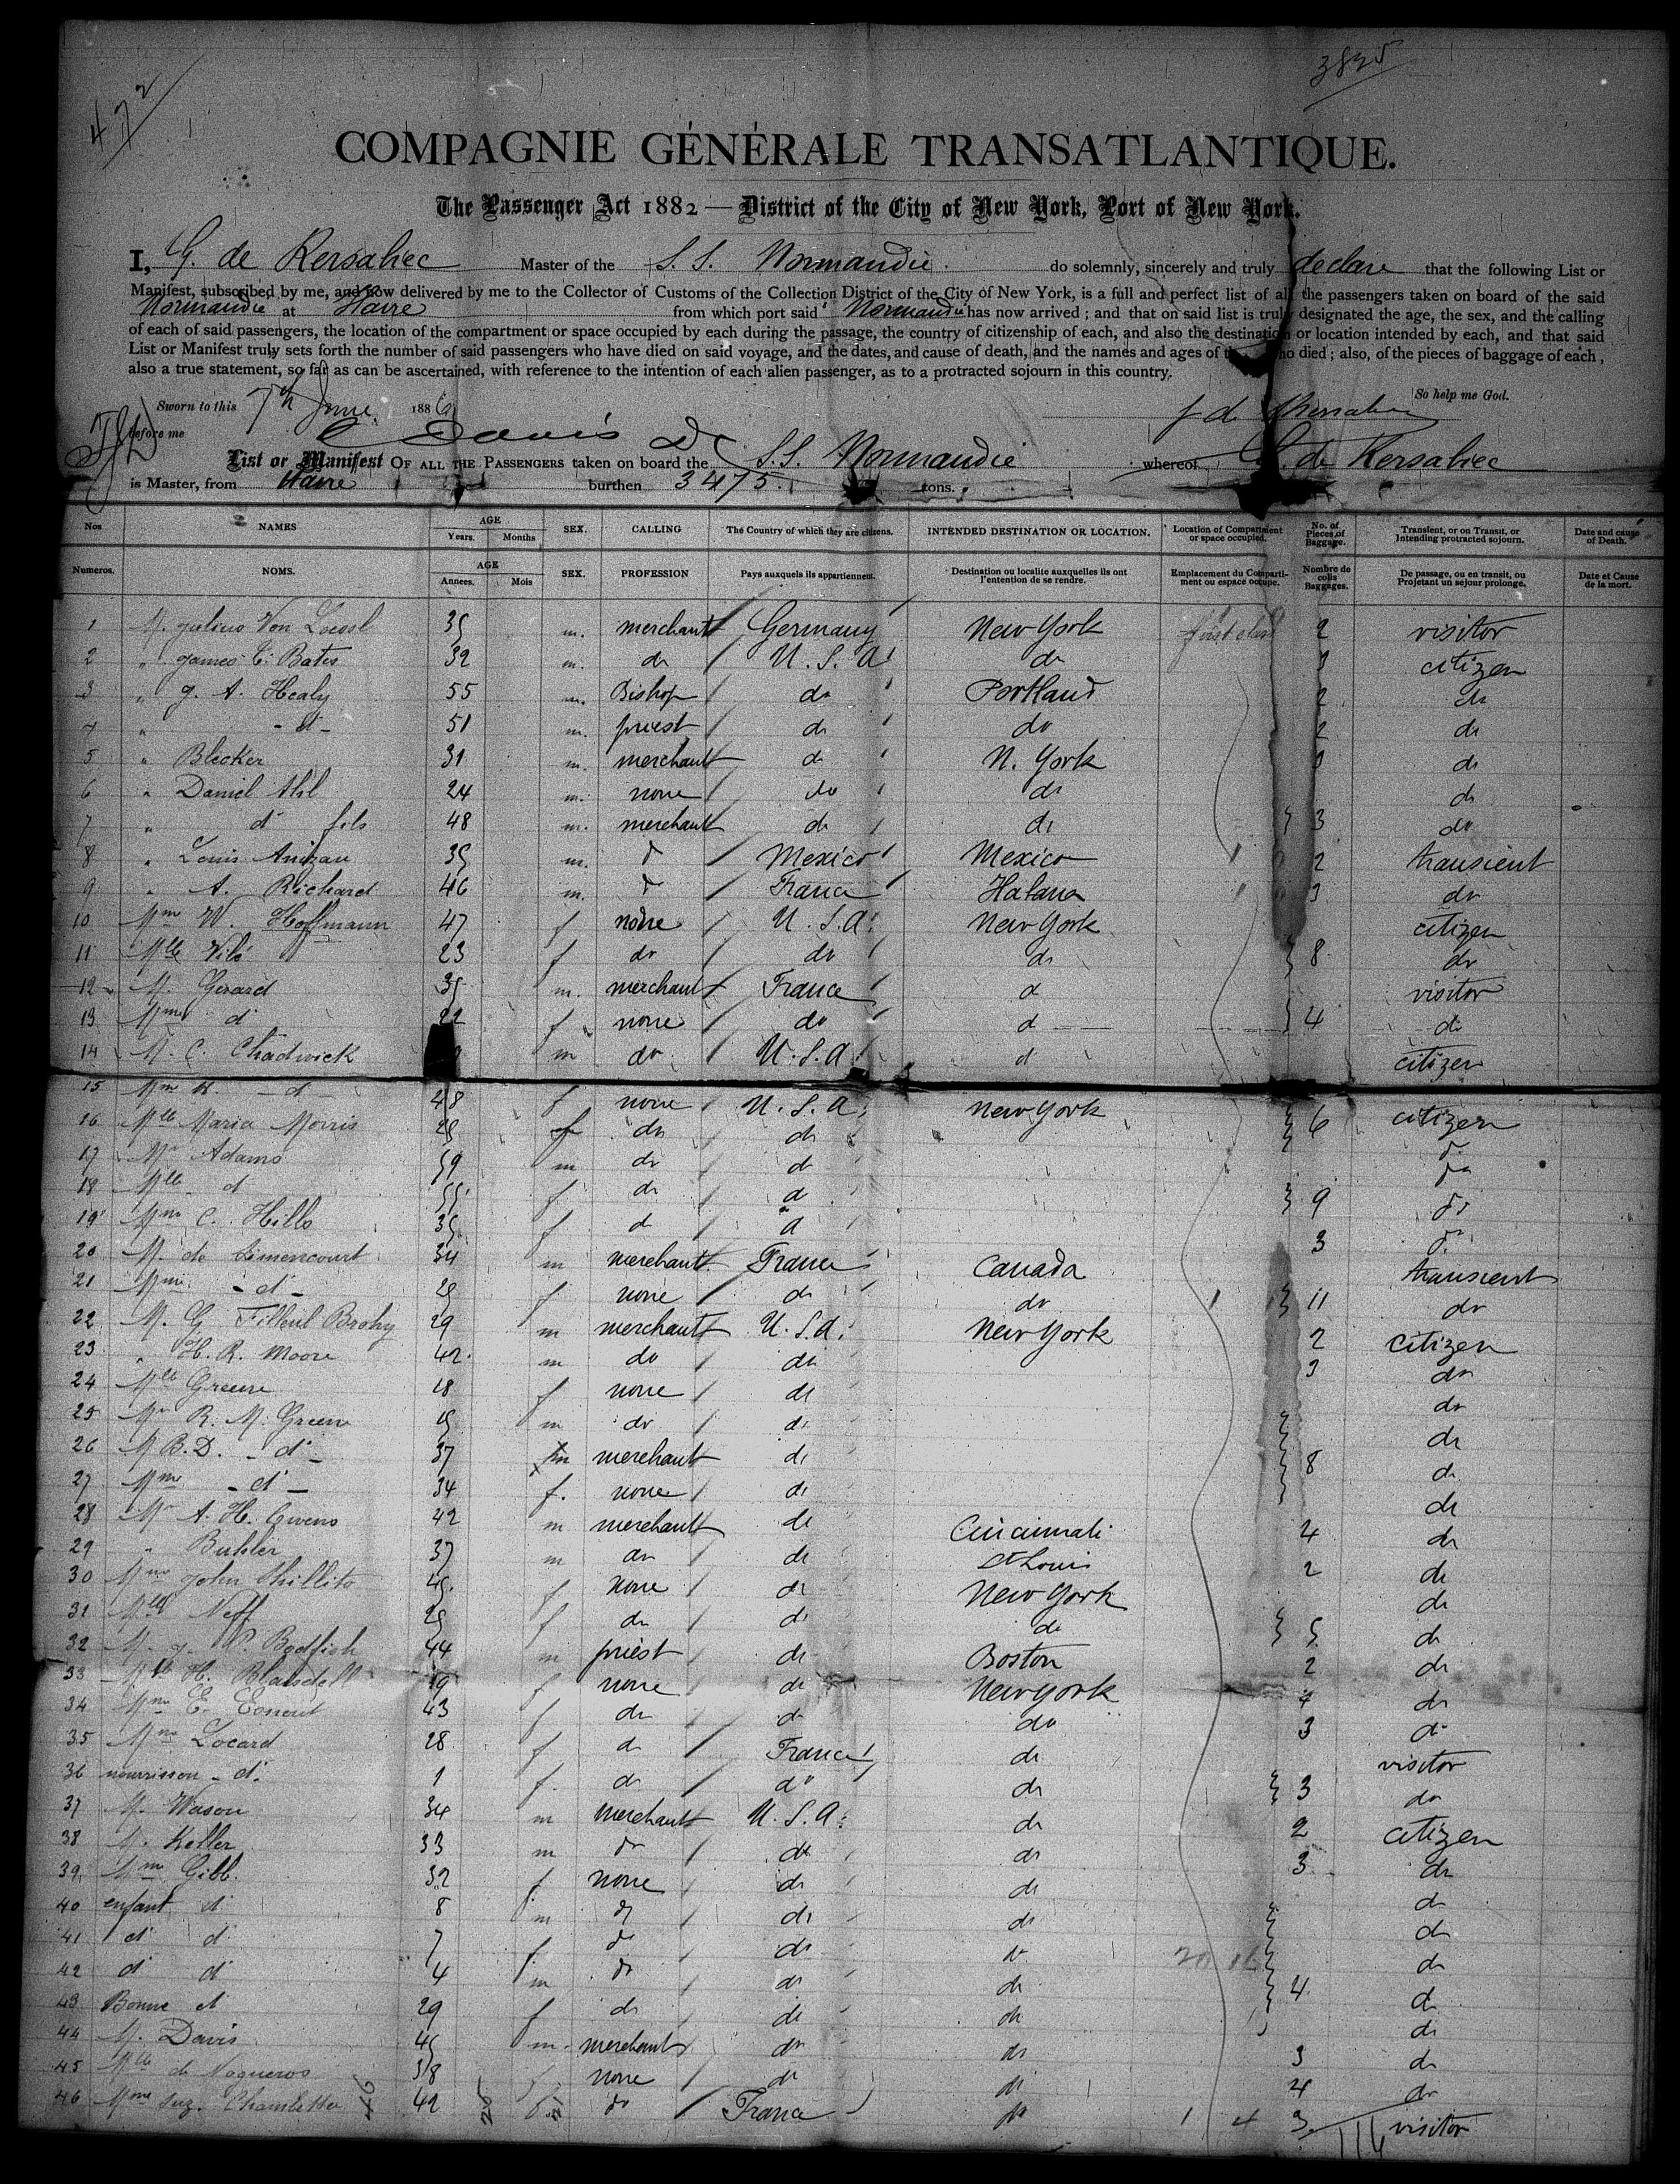 472
3825
COMPAGNIE GÉNÉRALE TRANSATLANTIQUE.
The Passenger Act 1882 — District of the City of New York, Port of New York.
I, G. de Kersabiec Master of the S.S. Normandie. do solemnly, sincerely and truly declare that the following List or
Manifest, subscribed by me, and now delivered by me to the Collector of Customs of the Collection District of the City of New York, is a full and perfect list of all the passengers taken on board of the said
Normandie at Havre from which port said Normandie has now arrived ; and that on said list is truly designated the age, the sex, and the calling
of each of said passengers, the location of the compartment or space occupied by each during the passage, the country of citizenship of each, and also the destination or location intended by each, and that said
List or Manifest truly sets forth the number of said passengers who have died on said voyage, and the dates, and cause of death, and the names and ages of who died ; also, of the pieces of baggage of each ,
also a true statement, so far as can be ascertained, with reference to the intention of each alien passenger, as to a protracted sojourn in this country.
So help me God.
Sworn to this 7th June 1886
before me Davis
List or Manifest OF ALL THE PASSENGERS taken on board the S.S. Normandie whereof G. de Kersabiec
is Master, from Havre burthen 3475. tons.
Nos NAMES AGE Years. Months SEX. CALLING The Country of which they are citizens. INTENDED DESTINATION OR LOCATION. Location of Compartment or space occupied. No. of Pieces of Baggage. Transient, or on Transit, or Intending protracted sojourn. Date and cause of Death.
Numeros. NOMS. AGE Années. Mois SEX. PROFESSION Pays auxquels ils appartiennent. Destination ou localite auxquelles ils ont l'entention de se rendre. Emplacement du Comparti-ment ou espace occupe. Nombre de colis Bagages. De passage, ou en transit, ou Projetant un sejour prolonge. Date et Cause de la mort.
1 M. Julius Von 35 m. merchant Germany New York first class 2 visitor
2 " James C. Bates 32 m. do U.S.A do citizen
3 " J. A. Healy 55 m. Bishop do Portland 2 do
4 " - d - 51 m. priest do do 2 do
5 " Blecker 31 m. merchant do N. York do
6 " Daniel 24 m. none do do do
7 " d fils 48 m. merchant do do 3 do
8 " Louis 35 m. d Mexico Mexico 2 transient
9 " A. Richard 46 m. d France Habana 3 do
10 Mme W. Hoffmann 47 f none U.S.A. New York citizen
11 Mlle 23 f do do do 8 do
12 M. Gerard 35 m. merchant France d visitor
13 Mme d 22 f none do d 4 do
14 M. C. Chadwick m do U.S.A. d citizen
15 Mme - d - 48 f none U.S.A. New York citizen
16 Mlle Maria Morris 25 f do do 6 d
17 Mr Adams 59 m do do do
18 Mlle d 55 f do d 9 do
19 Mme C. Hills 35 f d d 3 do
20 M. de Limencourt 34 m merchant France Canada transient
21 Mme - d - 25 f none do do 11 do
22 M. G 29 m merchant U.S.A. New York 2 citizen
23 " H. R. Moore 42 m do do 3 do
24 Mlle Greene 18 f none do do
25 Mr R. M. Greene m do do do
26 M B.D. - d - 37 m merchant do 8 do
27 Mme - d - 34 f. none do do
28 Mr A. H. 42 m merchant do Cincinnati 4 do
29 " Buhler 37 m do do St Louis 2 do
30 Mme John Shillito 45 f none do New York do
31 Mlle Neff 25 f do do do 5 do
32 M. J. P. Bodfish 44 m priest do Boston 2 do
33 Mlle H. Blaisdell 19 f none do New York 4 do
34 Mme E. 43 f do do do 3 do
35 Mme Locard 28 f d France do visitor
36 nourrisson - d. 1 f. do do do 3 do
37 M. Wason 34 m merchant U.S.A. do 2 citizen
38 M. Keller 33 m do do do 3 do
39 Mme Gibb. 32 f none do do do
40 enfant d 8 m do do do do
41 d d 7 f do do do do
42 d d 4 m do do do 4 do
43 Bonne d 29 f do do do do
44 M. Davis 45 m. merchant do do 3 do
45 Mlle de Nogueros 38 f none do do 4 do
46 Mme Suz. 42 f. do France do 3 visitor
116